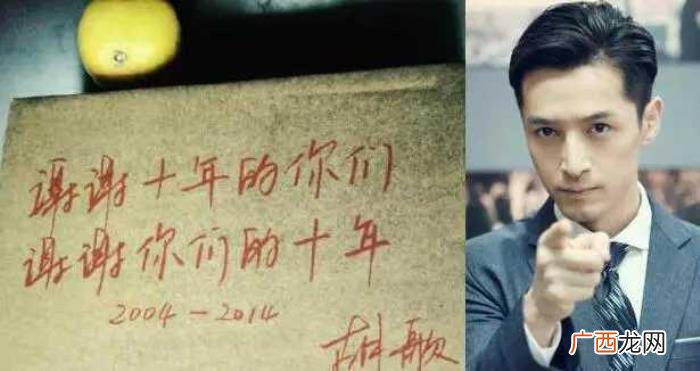 谢谢十年的你们
谢谢你们的十年
2004-2014
胡歌
广西龙网